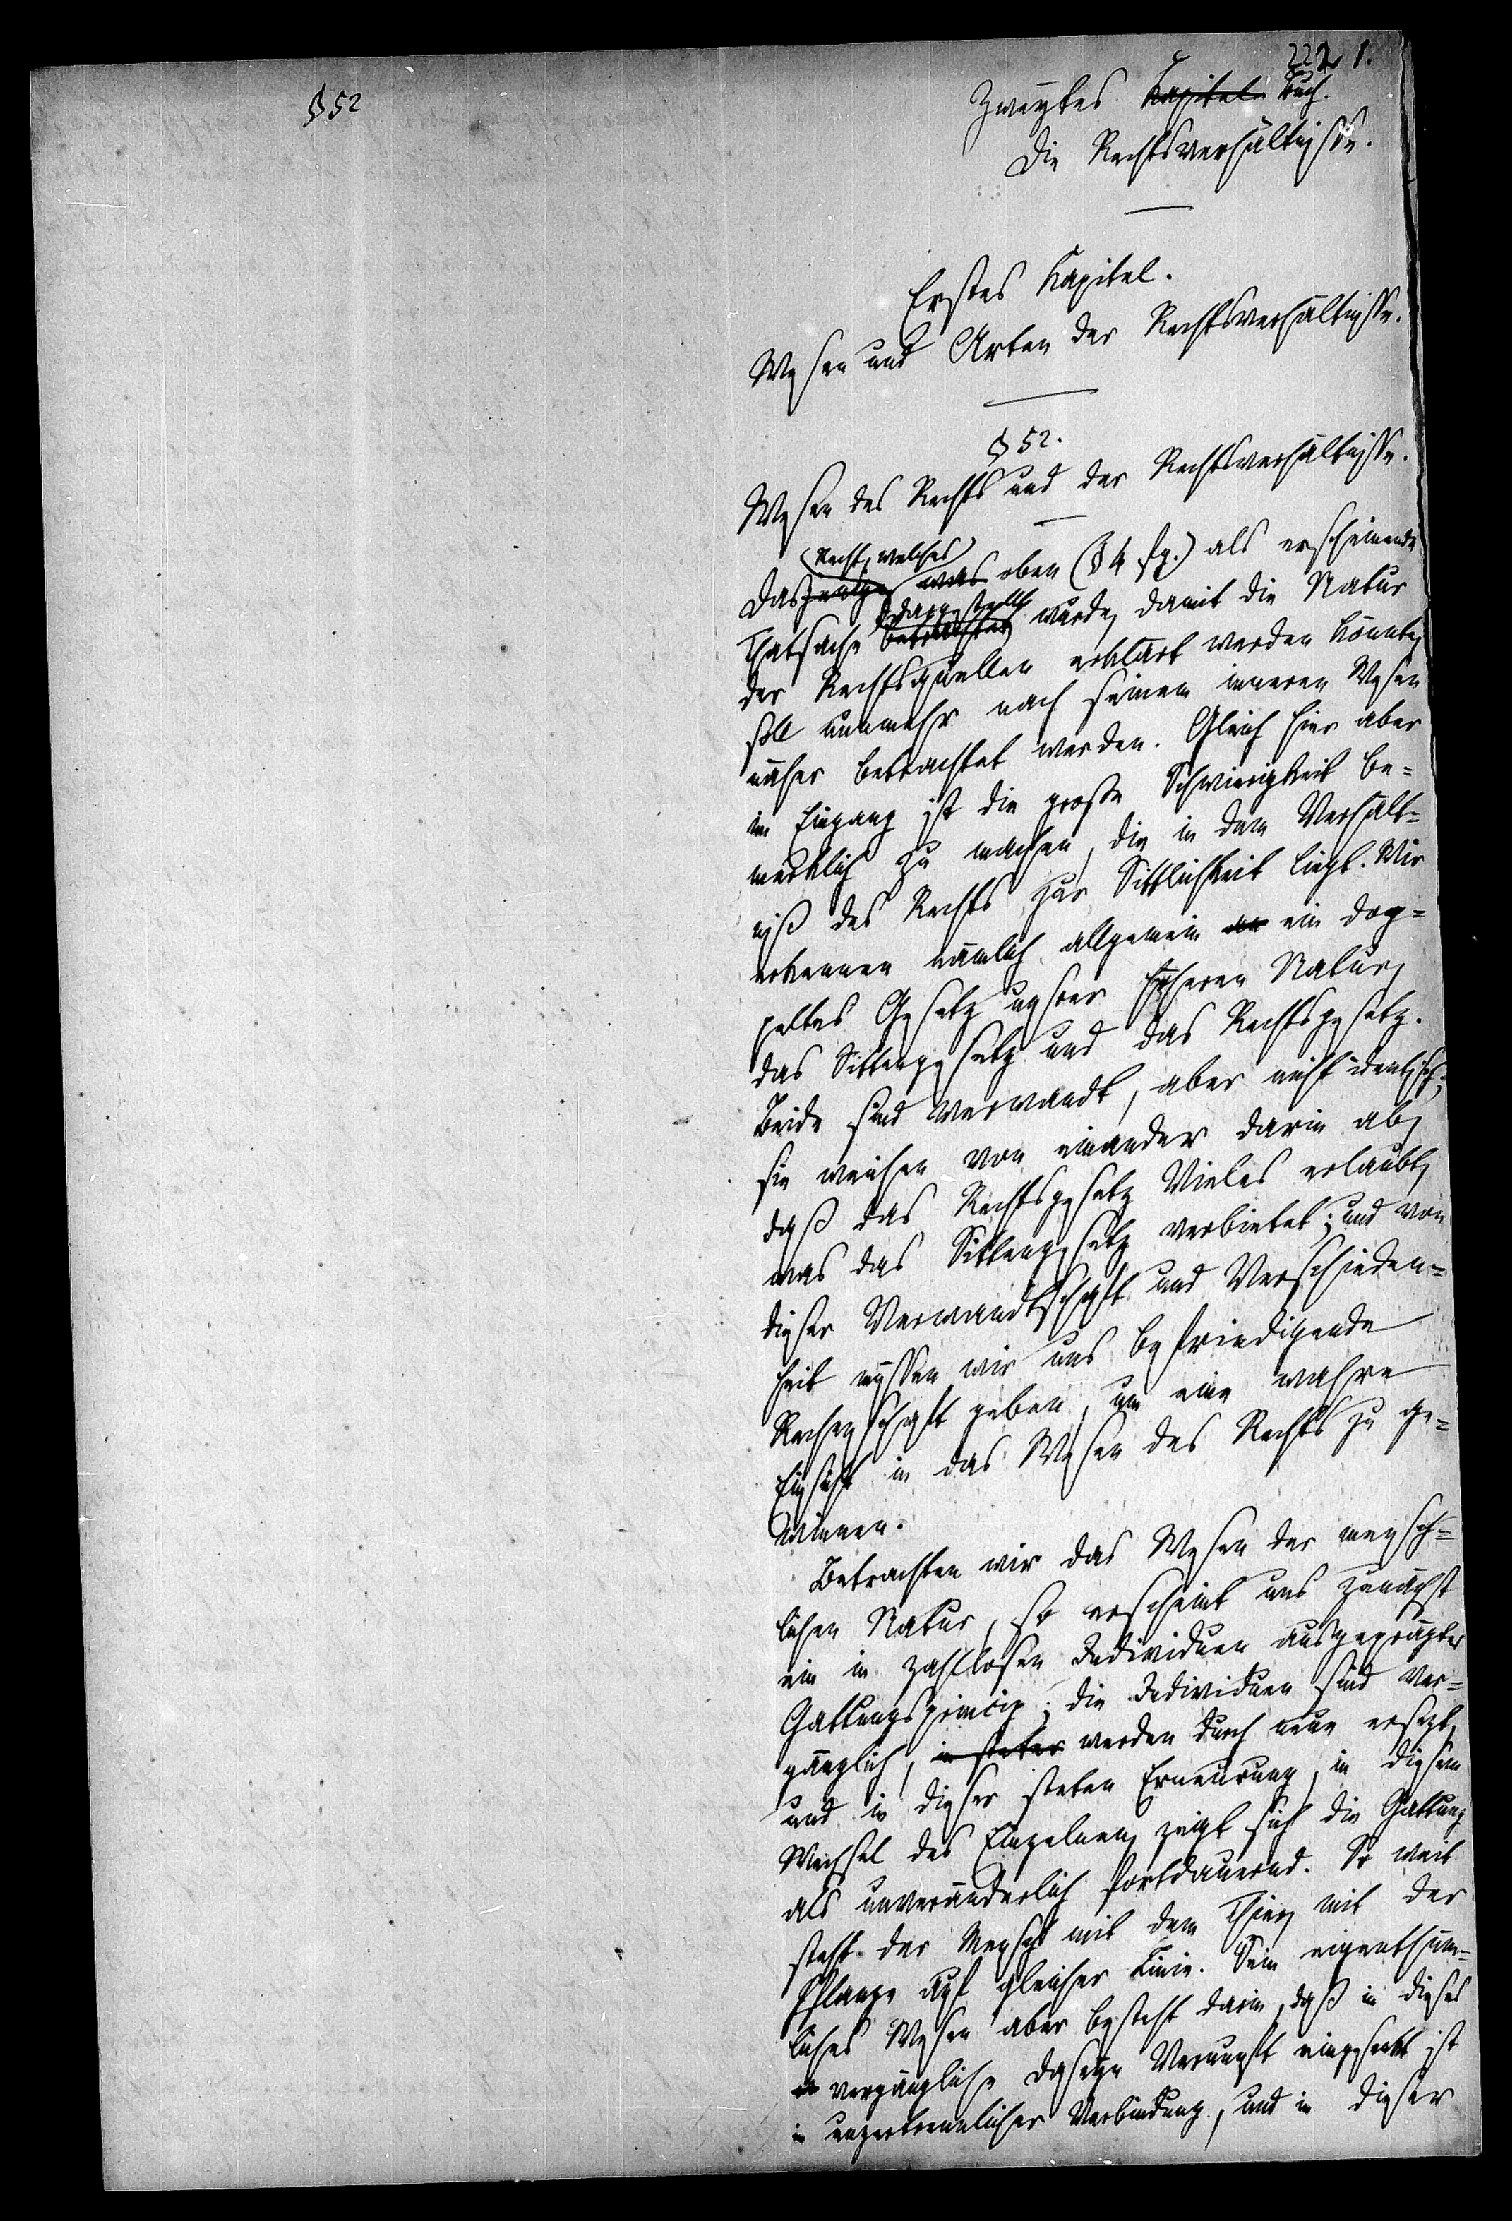 222 1.
§ 52
Zweytes Kapitel Buch.
Die Rechtsverhältnisse.
Erstes Kapitel.
Wesen und Arten der Rechtsverhältnisse.
§ 52.
Wesen des Rechts und der Rechtsverhältnisse.
Recht, welches
Dasjenige, was oben (§ 4 fg.) als erscheinende
dargestellt
Thatsache betrachtet wurde, damit die Natur
der Rechtsquellen erklärt werden könnte,
soll nunmehr nach seinem inneren Wesen
näher betrachtet werden. Gleich hier aber
im Eingang ist die große Schwierigkeit be=
merklich zu machen, die in dem Verhält=
niß des Rechts zur Sittlichkeit liegt. Wir
erkennen nämlich allgemein an ein dop=
peltes Gesetz unsrer höheren Natur,
das Sittengesetz und das Rechtsgesetz.
Beide sind verwandt, aber nicht identisch;
sie weichen von einander darin ab,
daß das Rechtsgesetz Vieles erlaubt,
was das Sittengesetz verbietet; und von
dieser Verwandtschaft und Verschieden=
heit müssen wir uns befriedigende
Rechenschaft geben, um eine wahre
Einsicht in das Wesen des Rechts zu ge=
winnen.
Betrachten wir das Wesen der mensch=
lichen Natur, so erscheint uns zunächst
ein in zahllosen Individuen ausgeprägtes
Gattungsprincip; die Individuen sind ver=
gänglich, in steter werden durch neue ersetzt,
und in dieser steten Erneurung, in diesem
Wechsel des Einzelnen, zeigt sich die Gattung
als unveränderlich fortdauernd. So weit
steht der Mensch mit dem Thier, mit der
Pflanze auf gleicher Linie. Sein eigenthüm=
liches Wesen aber besteht darin, daß in dieses
vergängliche Daseyn Vernunft eingesenkt ist
in unzertrennlicher Verbindung, und in dieser